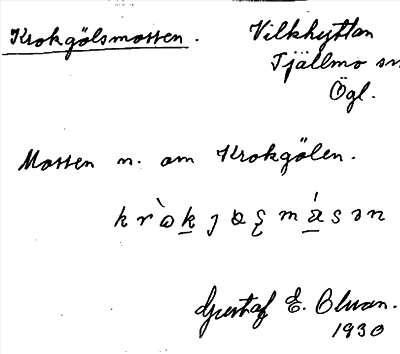 Krokgölsmossen.
Vilkhyttan
Tjällmo sn
Ögl.
Mossen n. om Krokgölen.
Gustaf E. Olson.
1930